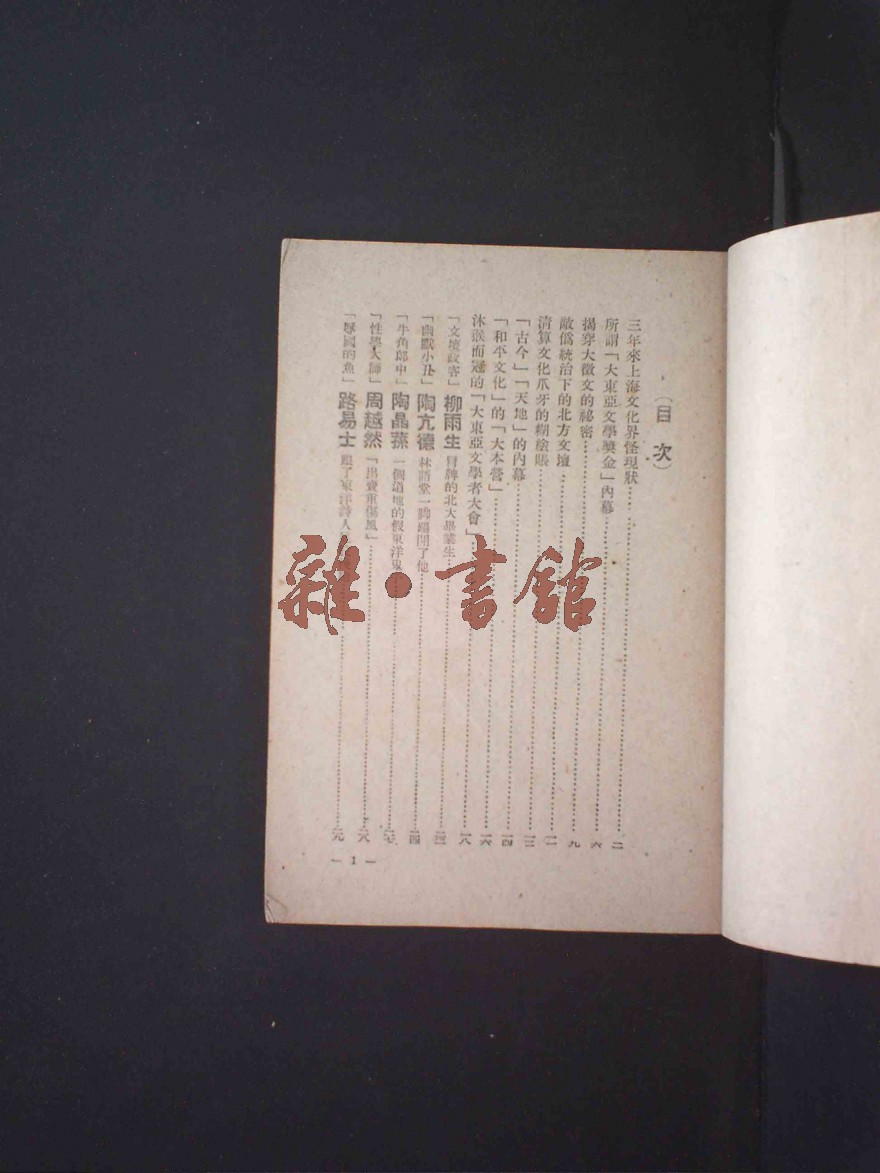 （目次）
三年來上海文化界怪現狀……二
所謂「大東亞文學獎金」內幕……六
揭穿大徵文的祕密……九
敵僞統治下的北方文壇……一一
清算文化爪牙的糊塗賬……一三
「古今」「天地」的內幕……一四
「和平文化」的「大本營」……一六
沐猴而冠的「大東亞文學者大會」……一八
「文壇政客」柳雨生 冒牌的北大畢業生……
「幽默小丑」陶亢德 林語堂一脚踢開了他……
「牛角郎中」陶晶孫 一個道地的假東洋鬼……
「性學大師」周越然 「出賣重傷風」……
「辱國的魚」路易士 跟了東洋詩人……
— 1 —
雜·書館